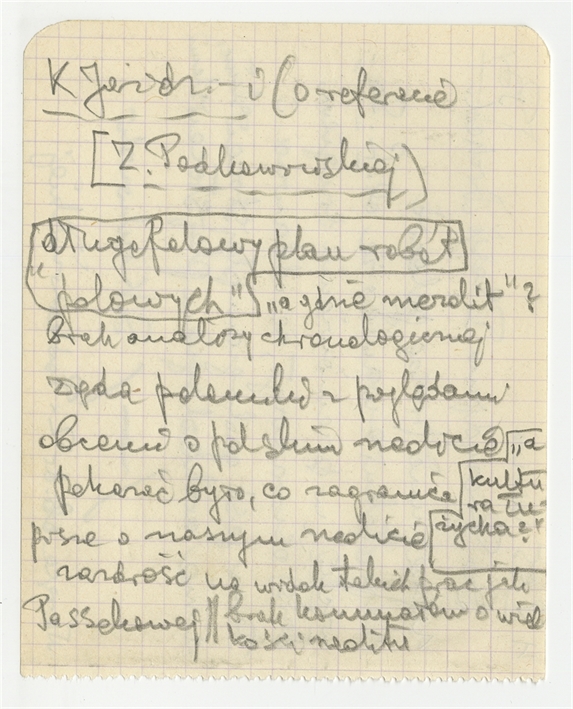 K Jażdż-i (o referacie
[Z. Podkowińskiej)
długofalowy plan robót
"polowych" „a gdzie merolit"?
brak analizy chronologicznej
żąda polemiki z poglądami
obcemi o polskim neolicie „a
pokazać było, co zagranica kultu
ra Łu-
pisze o naszym neolicie życka?"
zazdrość na widok takich prac jak
Passekowej || brak komunatów o wiel
kości neolitu